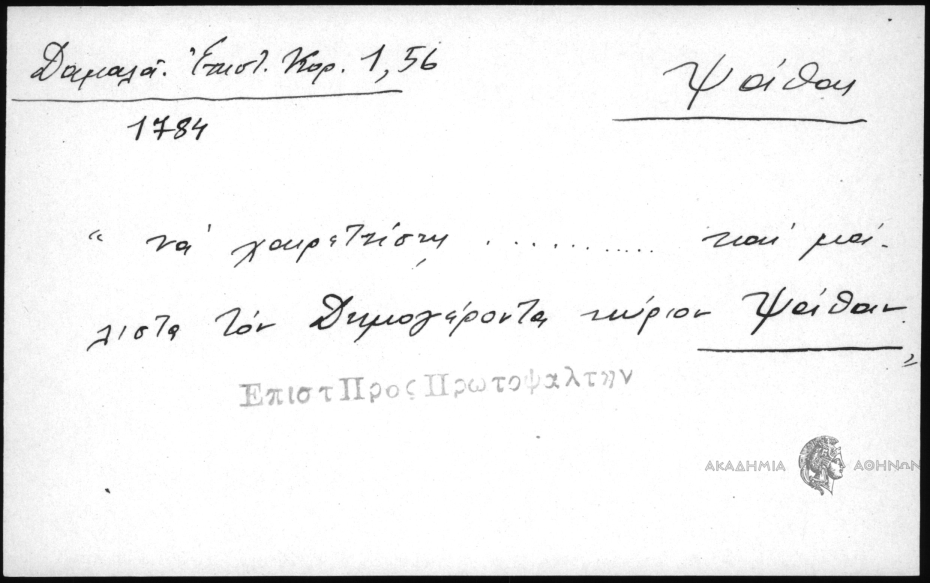 Δαμαλᾶ. Ἐπιστ. Κορ. 1, 56
Ψάθας
1784
“ νά χαιρετήσῃς .......... καί μά-
λιστα τόν Δημογέροντα κύριον Ψάθαν „
Επιστ Προς Πρωτοψαλτην
ΑΚΑΔΗΜΙΑ ΑΘΗΝΩΝ